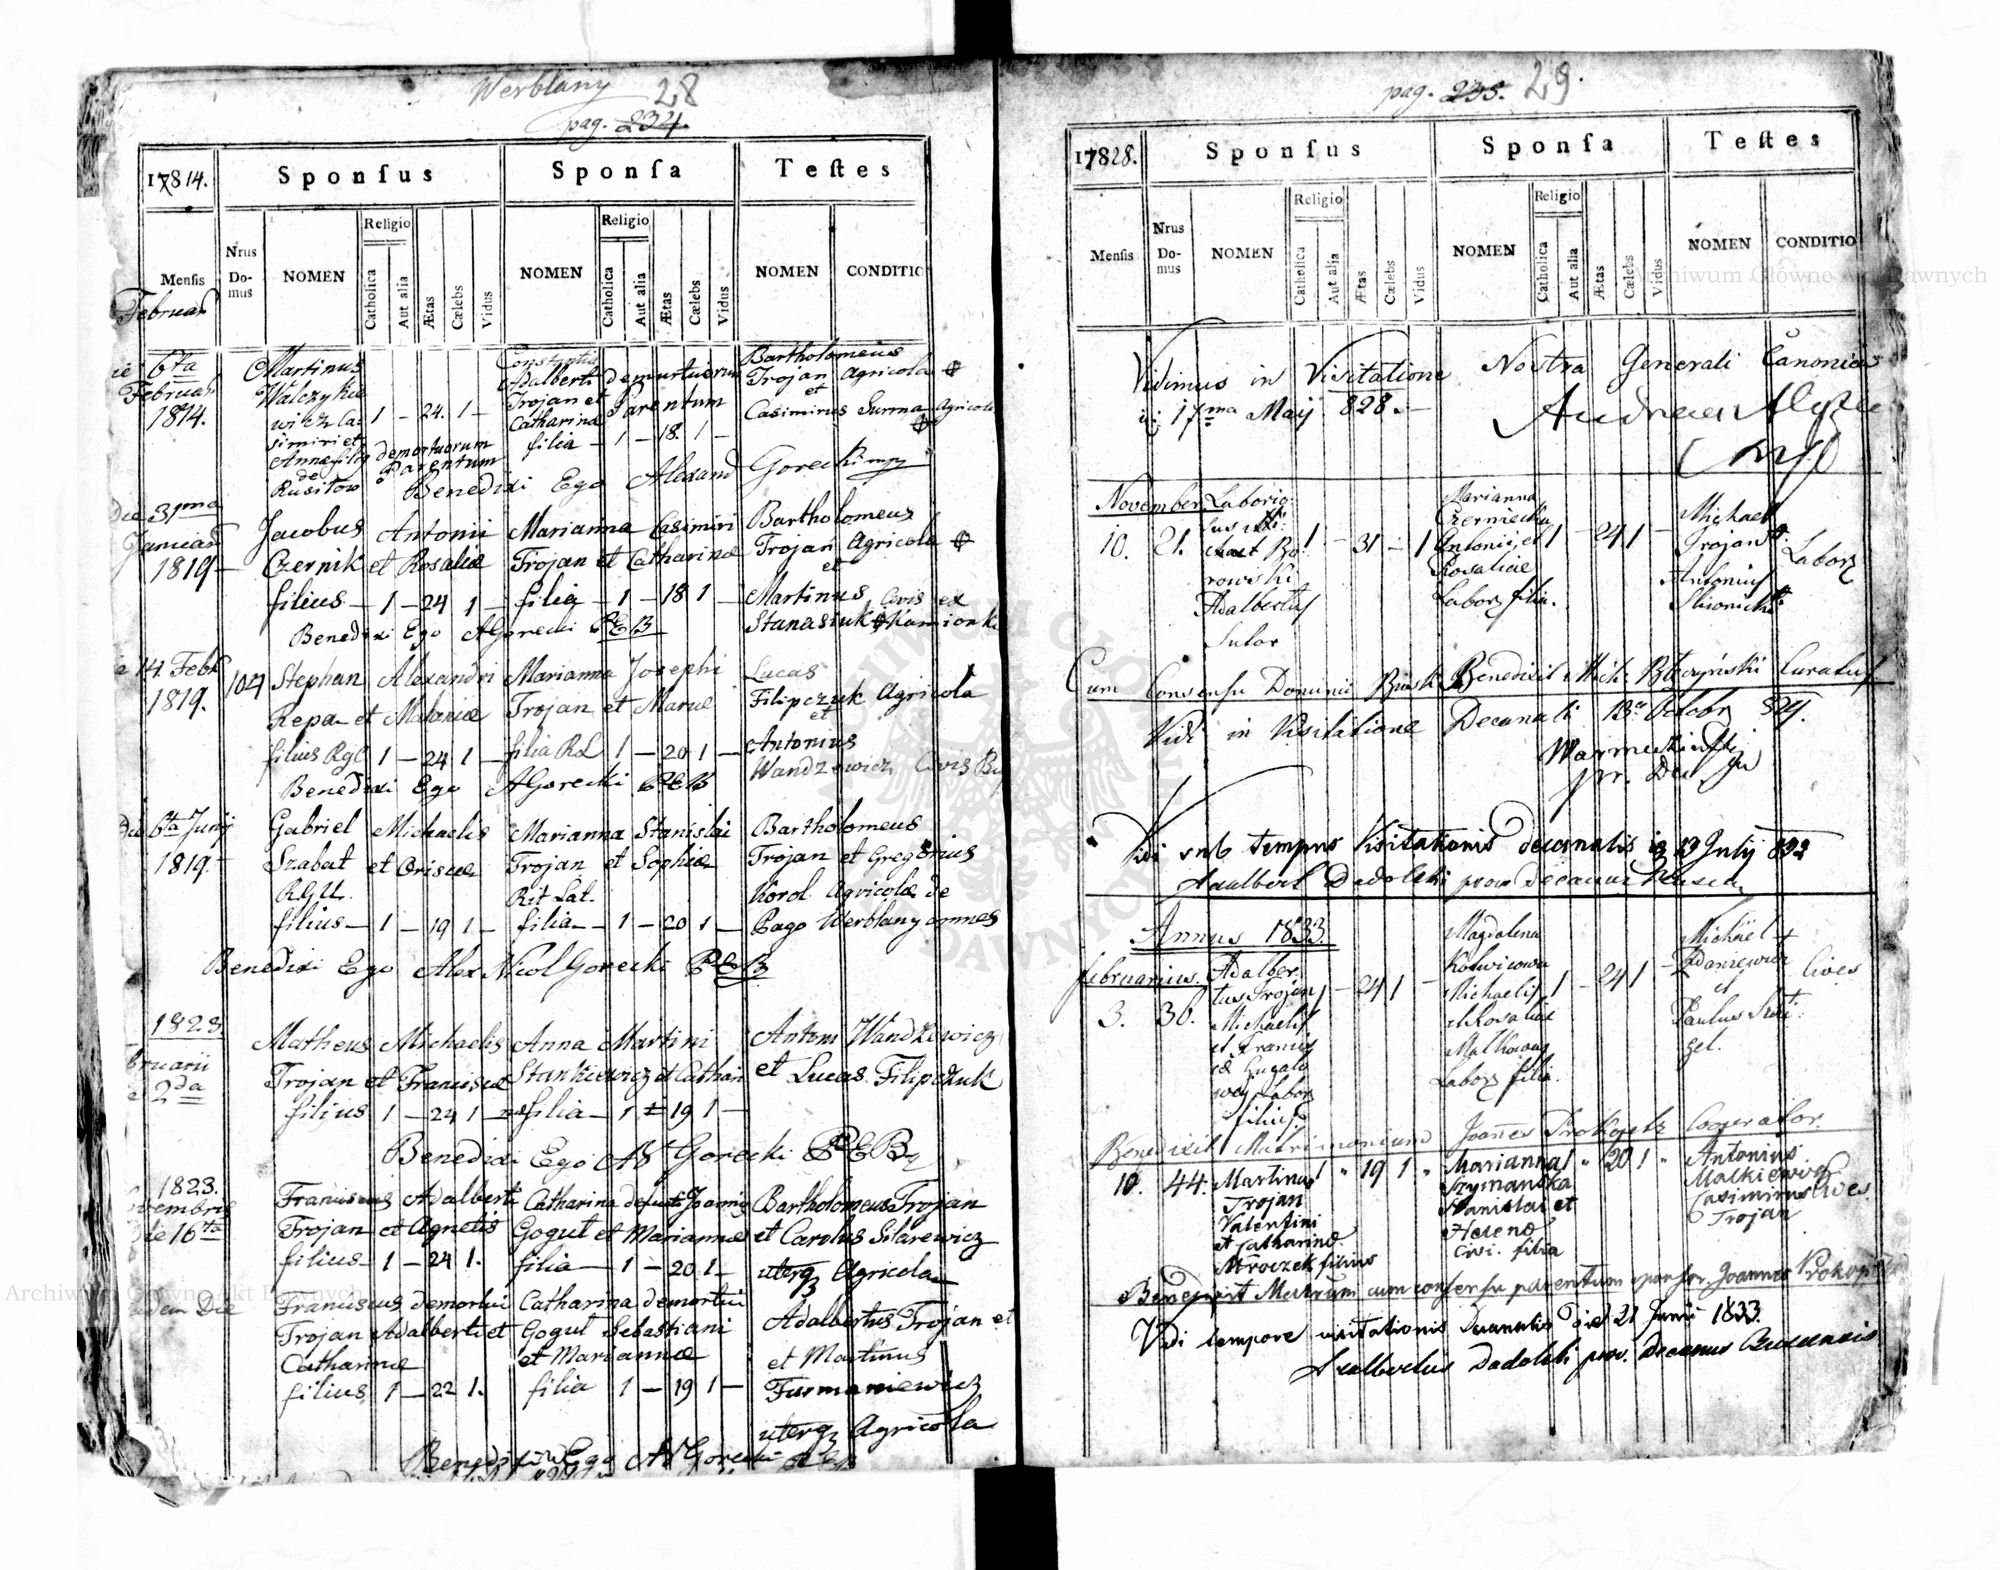 Werblany 28
pag. 234.
17814.
Sponsus
Sponsa
Testes
Mensis
Nrus Domus
NOMEN
Religio
Catholica
Aut alia
Ætas
Cælebs
Vidus
NOMEN
Religio
Catholica
Aut alia
Ætas
Cælebs
Vidus
NOMEN
CONDITIO
Februar
6ta
Februar
1814.
Martinus
Casimiri et
Annæ filius demortuorum
Parentum
de
Rusitow
1 – 24. 1 –
Constantia
Adalberti demortuorum
Trojan et Parentum
Catharina
filia – 1 – 18. 1 –
Bartholomeus
Trojan Agricola
et
Casimirus Surma Agricola
Benedixi Ego Alexand Gorecki mp
die 31ma
Januari
1819 –
Jacobus Antonii
Czernik et Rosaliæ
filius – 1 – 24 1 –
Marianna Casimiri
Trojan et Catharinæ
filia – 1 – 18 1 –
Bartholomeus
Trojan Agricola
et
Martinus Civis ex
Stanasiuk Kamionki
Benedixi Ego AGorecki PEB
14. Feb
1819.
104
Stephan Alexandri
Repa et Melaniæ
filius RgC 1 – 24 1 –
Marianna Josephi
Trojan et Mariæ
filia RL 1 – 20 1 –
Lucas
Filipczuk Agricola
et
Antonius
Wandzewicz Civis
Benedixi Ego AGorecki PEB
die 6ta Junij
1819.
Gabriel Michaelis
Szabat et
filius – 1 – 19 1 –
Marianna Stanislai
Trojan et Sophiæ
Rit Lat.
filia – 1 – 20 1 –
Bartholomeus
Trojan et Gregorius
Korol Agricolæ de
Pago Werblany omnes
Benedixi Ego Alex Nicol Gorecki PEB
1823.
bruarii
2da
Matheus Michaelis
Trojan et Franciscæ
filius 1 – 24 1 –
Anna Martini
Stankiewicz et Cathari
filia – 1 – 19 1 –
Antoni Wandzewicz
et Lucas Filipczuk
Benedixi Ego AN Gorecki PEB
1823.
ovembris
die 16ta
Franciscus Adalberti
Trojan et Agnetis
filius – 1 – 24 1.
Catharina defucti Joannis
Gogut et Mariannæ
filia – 1 – 20 1 –
Bartholomeus Trojan
et Carolus Silarewicz
uterq Agricola
adem Die
Franciscus demortui
Trojan Adalberti et
Catharinæ
filius 1 – 22 1.
Catharina demortui
Gogut Sebastiani
et Mariannæ
filia 1 – 19 1 –
Adalbertus Trojan et
et Martinus
Furmaniewicz
uterq Agricola
Benedixi Ego AN Gorecki PEB
pag. 235. 29.
17828.
Sponsus
Sponsa
Testes
Mensis
Nrus Domus
NOMEN
Religio
Catholica
Aut alia
Ætas
Cælebs
Vidus
NOMEN
Religio
Catholica
Aut alia
Ætas
Cælebs
Vidus
NOMEN
CONDITIO
Vidimus in Visitatione Nostra Generali Canonica
17ma Maij 828. –
November
10. 21.
Laborio
rowiski
Adalbertus
Sutor
1 – 31 – 1
Marianna
Czerniecka
Antonii et
Rosaliae
Labor filia.
1 – 24 1 –
Michael
Trojan
Antonius
Labor
Cum Consensu Dominii Benedixit Mich. Curatus
Vidi in Visitatione Decanali 13a Octobr 829.
Vidi sub tempus Visitationis decanalis 19 July 832
Adalbert Dadolski prov Decanus
Annus 1833.
februarius.
3. 36.
Adalber
tus Trojan
Michaelis
et Francis
Labor
filius.
1 – 24 1 –
Magdalena
Michaelis
Rosaliae
Labor filia.
1 – 24 1 –
Michael
Daniewicz
et
Paulus
Cives
Benedixit Matrimonium Joannes Prokopetz Cooperator.
10. 44.
Martinus 1 " 19 1 "
Trojan
Valentini
et Catharinæ
Mroczek filius
Marianna 1 " 20 1 "
Szymanska
Stanislai et
Helenæ
Civi. filia
Antonius
Malkiewicz
Casimirus Cives
Trojan
Benedixit Matrim cum consensu parentum sponsor. Joannes Prokopetz
Vidi tempore visitationis Decanalis Die 21 Junii 1833.
Adalbertus Dadolski prov. Decanus
Archiwum Główne Akt Dawnych
Archiwum Główne Akt Dawnych
ARCHIWUM GŁÓWNE AKT DAWNYCH